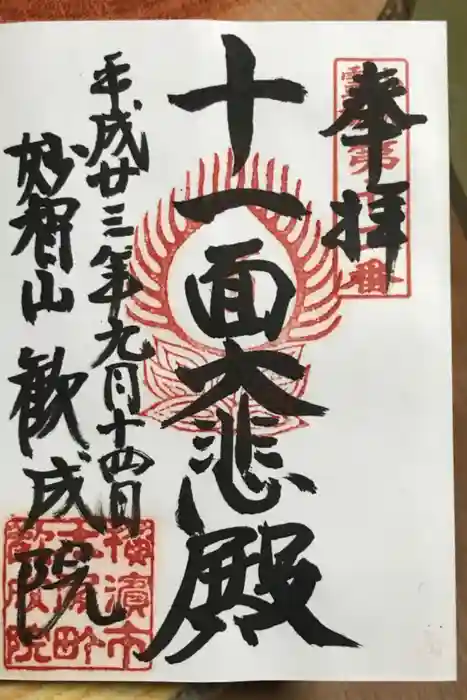 奉拝
十一面大悲殿
平成廿三年九月十四日
妙智山 歓成院
横濱市
大尾町
歓成院